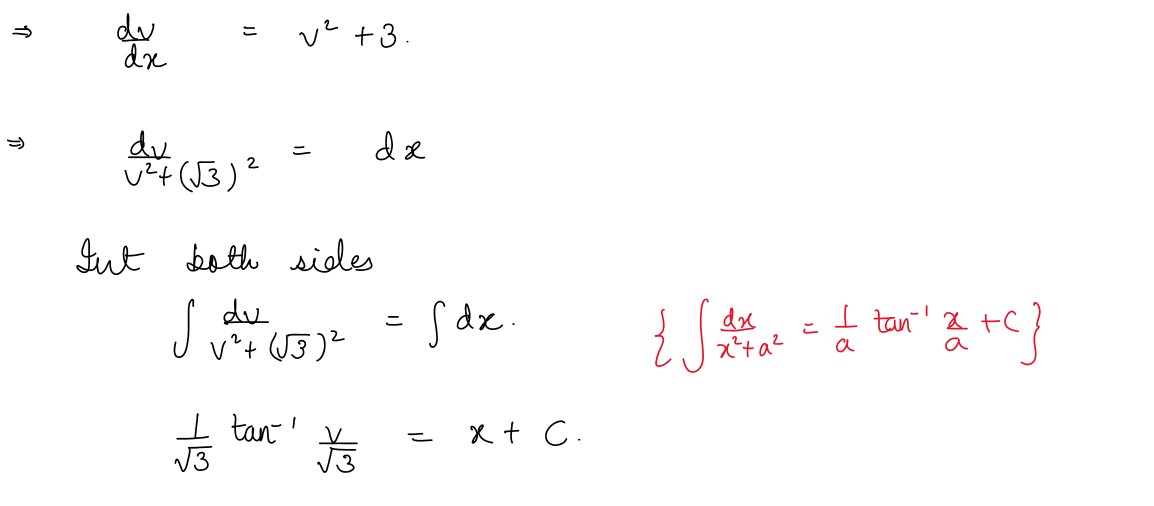 ⇒ dv/dx = v² + 3.
⇒ dv/(v² + (√3)²) = dx
Int both sides
∫ dv/(v² + (√3)²) = ∫ dx. { ∫ dx/(x² + a²) = 1/a tan⁻¹ x/a + C }
1/√3 tan⁻¹ v/√3 = x + C.